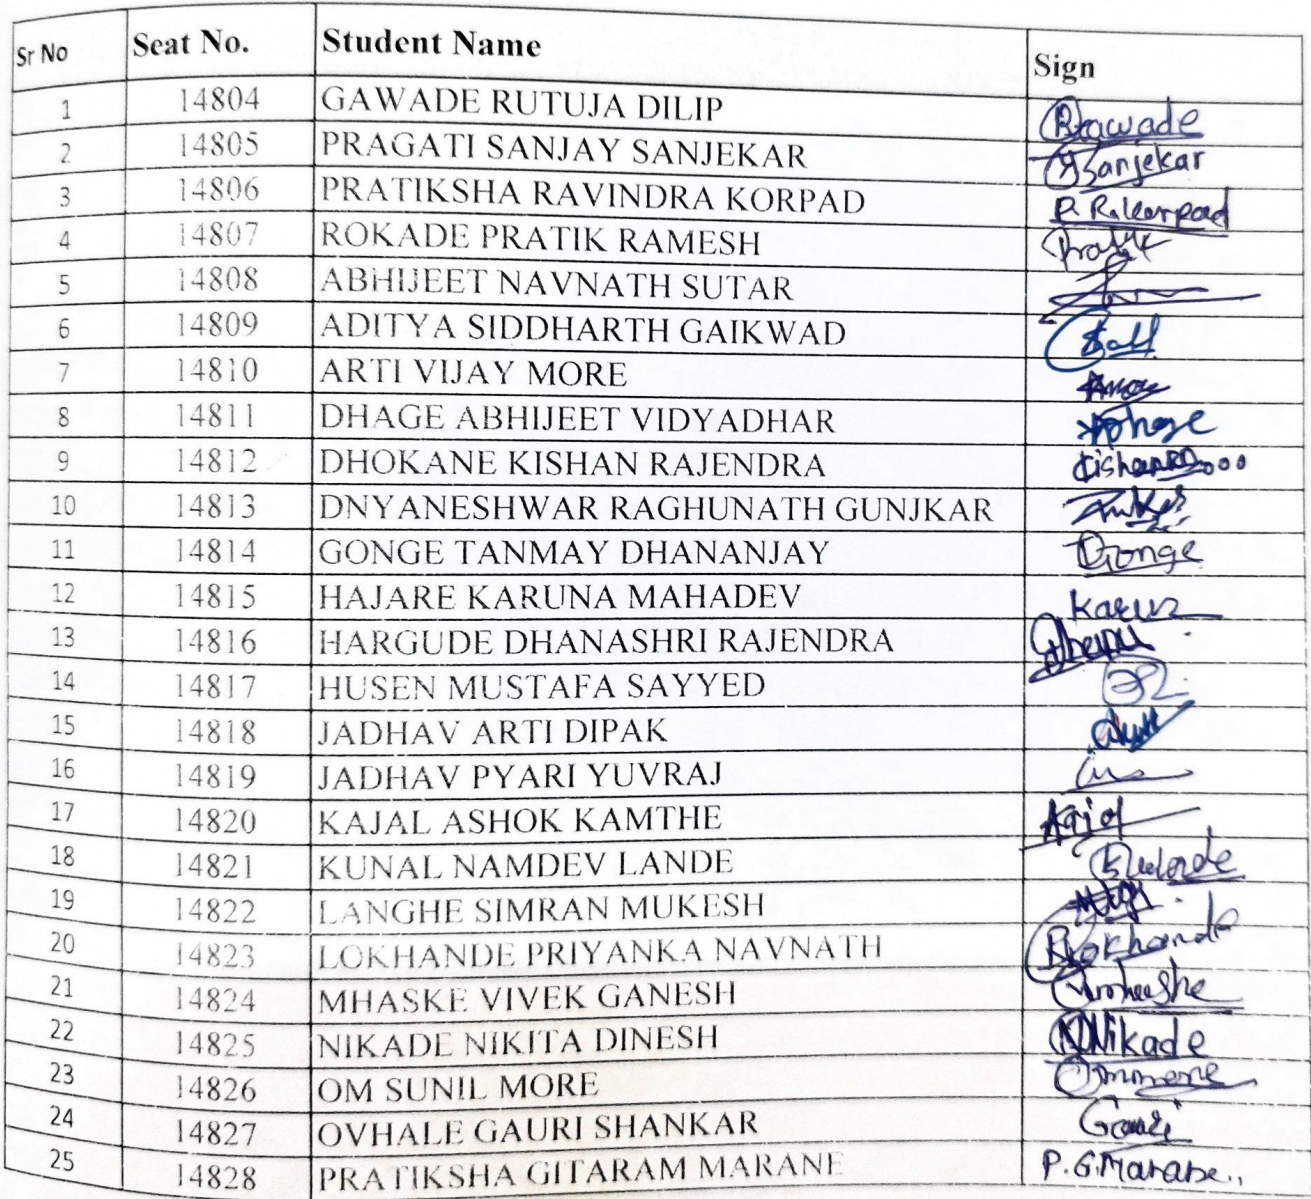 Sr No Seat No. Student Name Sign
1 14804 GAWADE RUTUJA DILIP Rgawade
2 14805 PRAGATI SANJAY SANJEKAR Sanjekar
3 14806 PRATIKSHA RAVINDRA KORPAD P. R. Korpad
4 14807 ROKADE PRATIK RAMESH Pratik
5 14808 ABHIJEET NAVNATH SUTAR
6 14809 ADITYA SIDDHARTH GAIKWAD
7 14810 ARTI VIJAY MORE
8 14811 DHAGE ABHIJEET VIDYADHAR
9 14812 DHOKANE KISHAN RAJENDRA
10 14813 DNYANESHWAR RAGHUNATH GUNJKAR
11 14814 GONGE TANMAY DHANANJAY
12 14815 HAJARE KARUNA MAHADEV
13 14816 HARGUDE DHANASHRI RAJENDRA
14 14817 HUSEN MUSTAFA SAYYED
15 14818 JADHAV ARTI DIPAK
16 14819 JADHAV PYARI YUVRAJ
17 14820 KAJAL ASHOK KAMTHE Kajal
18 14821 KUNAL NAMDEV LANDE
19 14822 LANGHE SIMRAN MUKESH
20 14823 LOKHANDE PRIYANKA NAVNATH Plokhande
21 14824 MHASKE VIVEK GANESH
22 14825 NIKADE NIKITA DINESH NDNikade
23 14826 OM SUNIL MORE Ommore
24 14827 OVHALE GAURI SHANKAR Gauri
25 14828 PRATIKSHA GITARAM MARANE P.G.Marane..